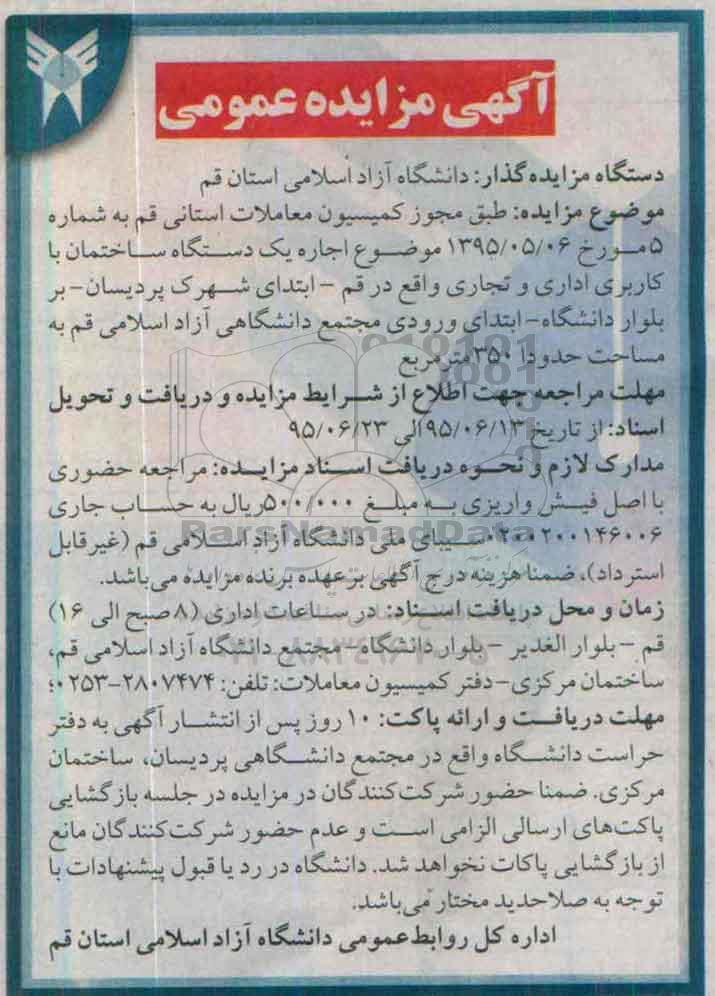 آگهی مزایده عمومی
دستگاه مزایده گذار: دانشگاه آزاد اسلامی استان قم
موضوع مزایده: طبق مجوز کمیسیون معاملات استانی قم به شماره
۵ مورخ ۱۳۹۵/۰۵/۰۶ موضوع اجاره یک دستگاه ساختمان با
کاربری اداری و تجاری واقع در قم - ابتدای شهرک پردیسان- بر
بلوار دانشگاه- ابتدای ورودی مجتمع دانشگاهی آزاد اسلامی قم به
مساحت حدودا ۳۵۰ مترمربع
مهلت مراجعه جهت اطلاع از شرایط مزایده و دریافت و تحویل
اسناد: از تاریخ ۹۵/۰۶/۱۳ الی ۹۵/۰۶/۲۳
مدارک لازم و نحوه دریافت اسناد مزایده: مراجعه حضوری
با اصل فیش واریزی به مبلغ ۵۰۰/۰۰۰ ریال به حساب جاری
۰۲۰۰۲۰۰۱۴۶۰۰۶ سیبای ملی دانشگاه آزاد اسلامی قم (غیرقابل
استرداد)، ضمنا هزینه درج آگهی برعهده برنده مزایده می باشد.
زمان و محل دریافت اسناد: در ساعات اداری (۸ صبح الی ۱۶)
قم - بلوار الغدیر - بلوار دانشگاه- مجتمع دانشگاه آزاد اسلامی قم،
ساختمان مرکزی- دفتر کمیسیون معاملات: تلفن: ۲۸۰۷۴۷۴-۰۲۵۳؛
مهلت دریافت و ارائه پاکت: ۱۰ روز پس از انتشار آگهی به دفتر
حراست دانشگاه واقع در مجتمع دانشگاهی پردیسان، ساختمان
مرکزی. ضمنا حضور شرکت کنندگان در مزایده در جلسه بازگشایی
پاکت‌های ارسالی الزامی است و عدم حضور شرکت کنندگان مانع
از بازگشایی پاکات نخواهد شد. دانشگاه در رد یا قبول پیشنهادات با
توجه به صلاحدید مختار می باشد.
اداره کل روابط عمومی دانشگاه آزاد اسلامی استان قم
ParsNamadData